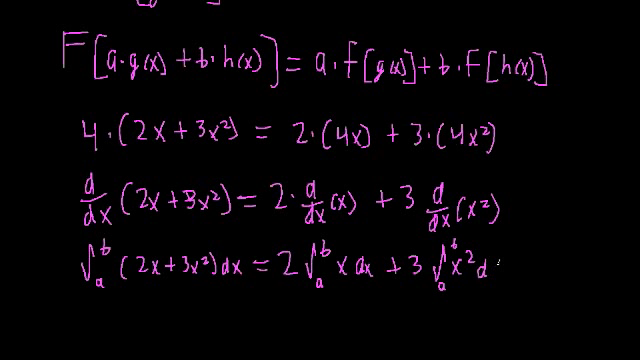 F[a·g(x) + b·h(x)] = a·F[g(x)] + b·F[h(x)]
4·(2x + 3x²) = 2·(4x) + 3·(4x²)
d/dx (2x + 3x²) = 2·d/dx (x) + 3 d/dx (x²)
∫_a^b (2x + 3x²) dx = 2 ∫_a^b x dx + 3 ∫_a^b x² d